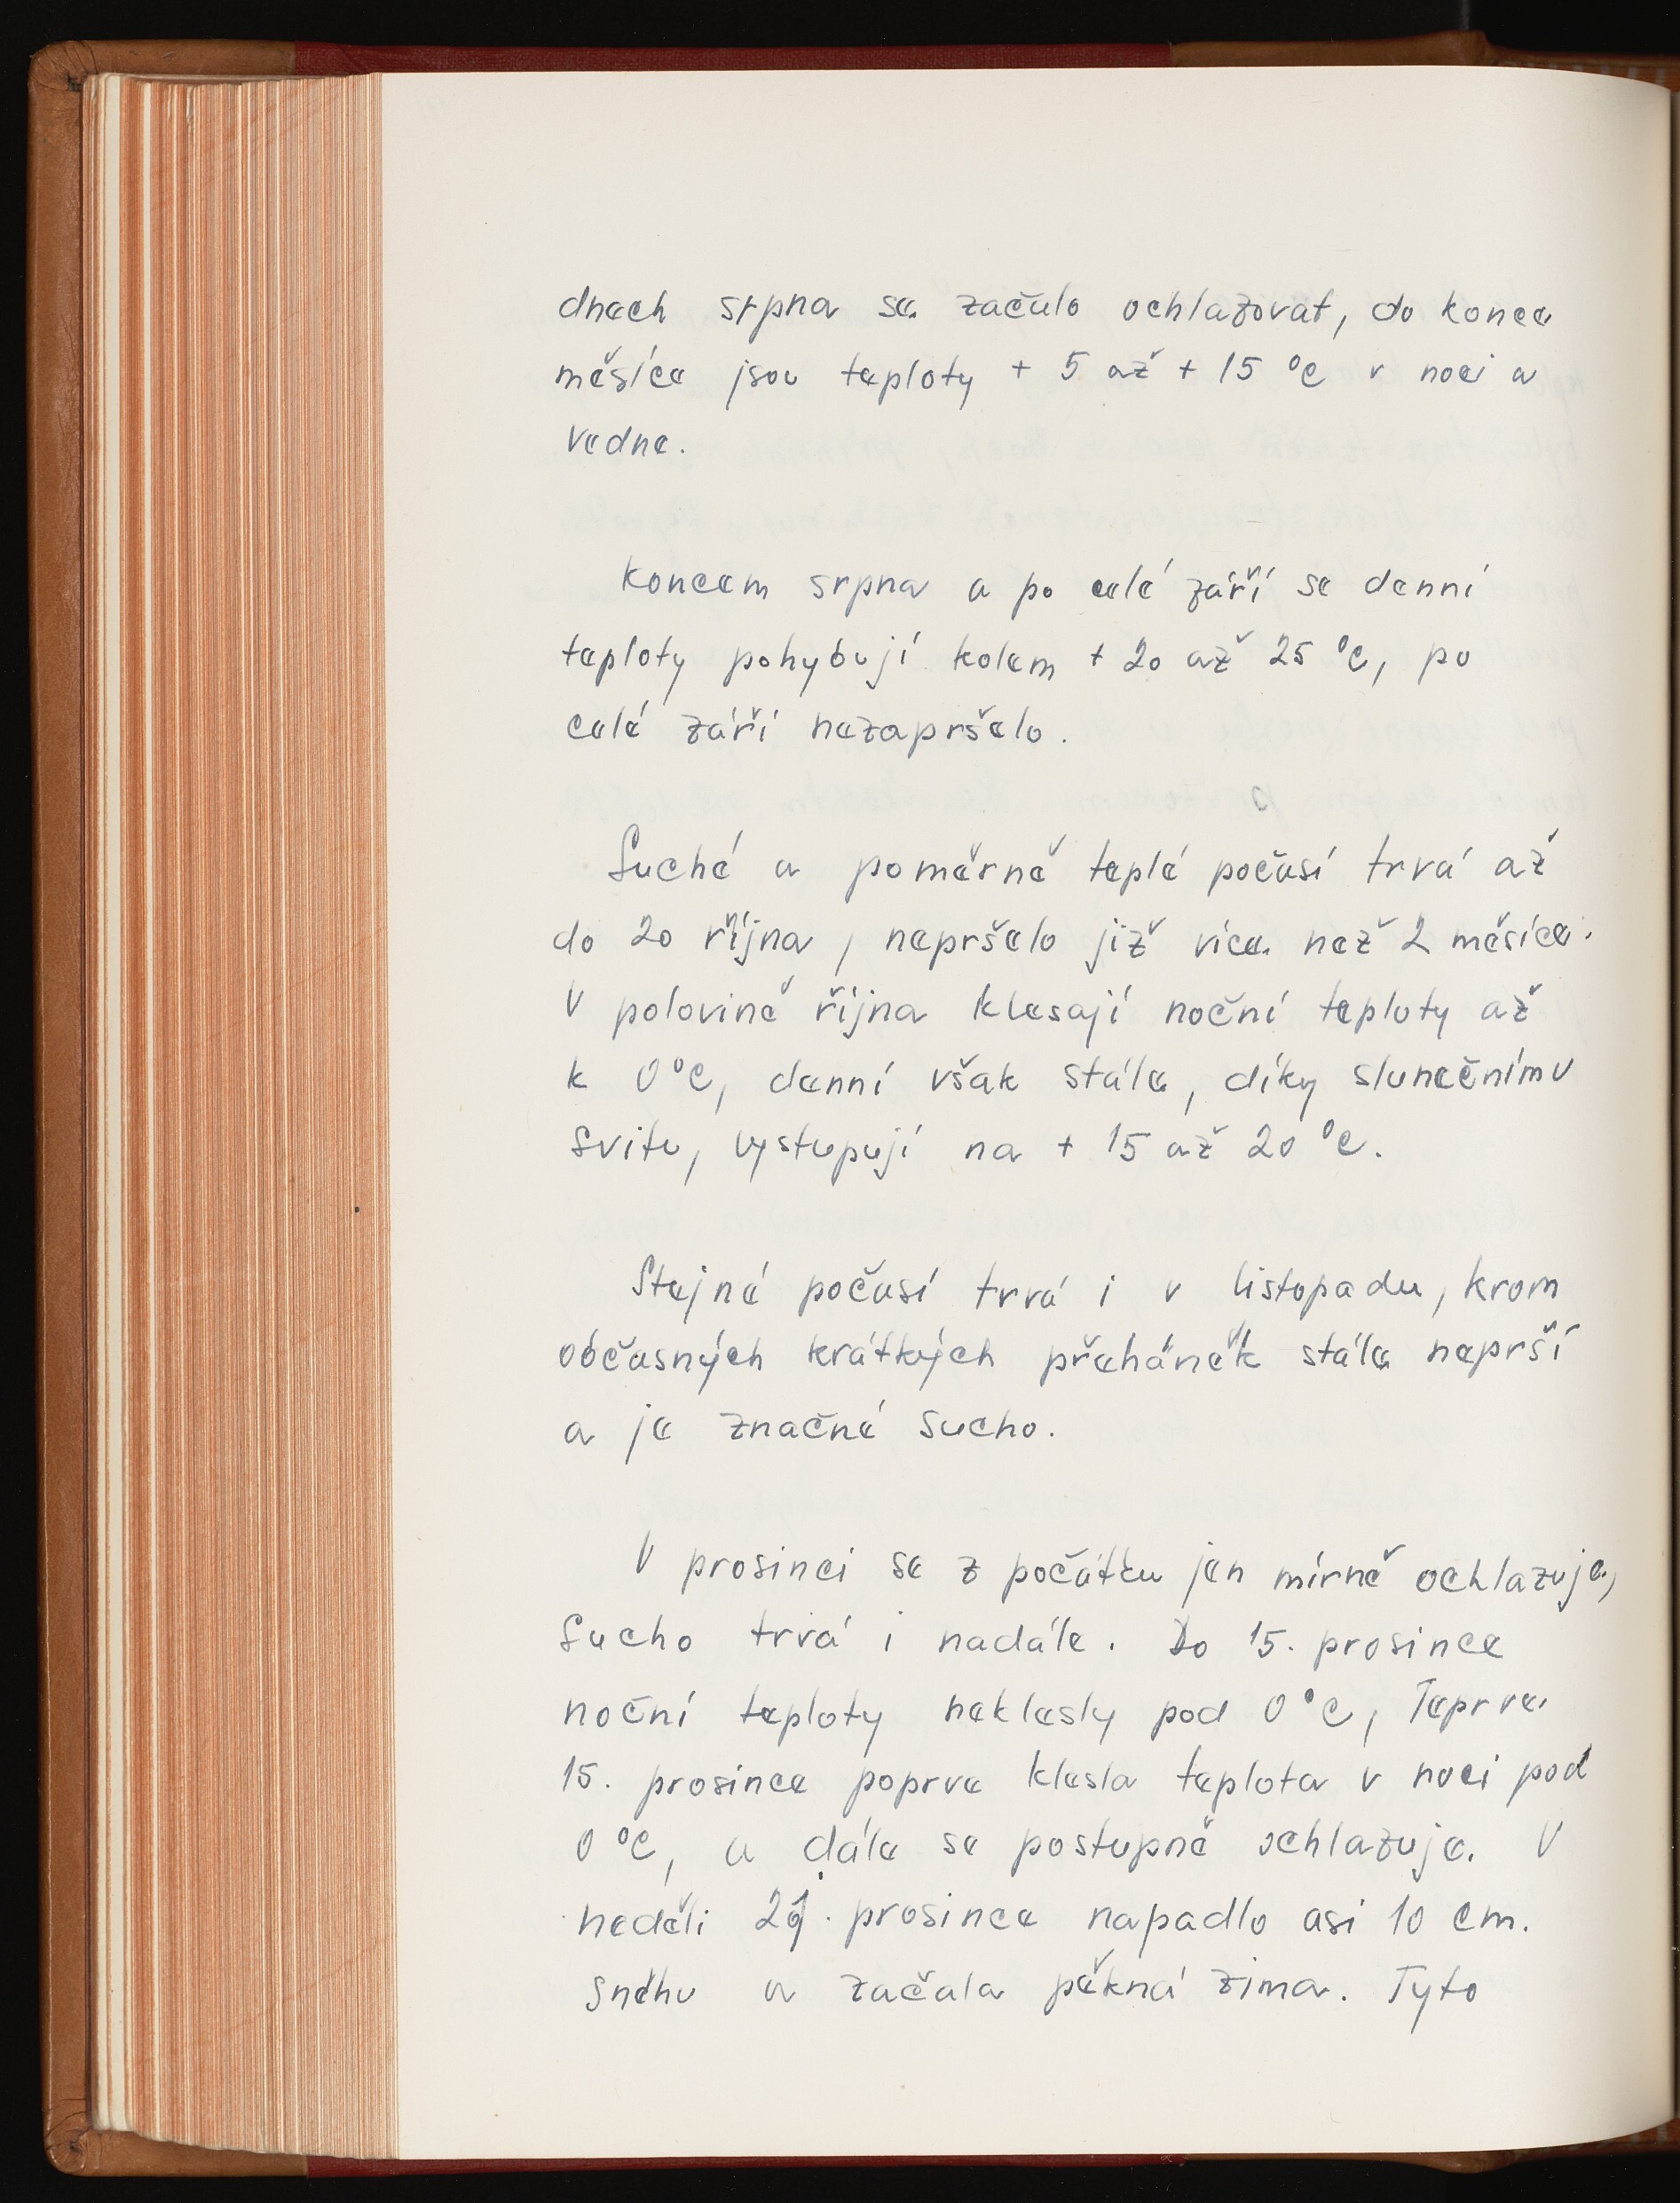 dnech srpna se začalo ochlazovat, do konce
měsíce jsou teploty + 5 až + 15 °C v noci a
vedne.
Koncem srpna a po celé září se denní
teploty pohybují kolem + 20 až 25 °C, po
celé září nezapršelo.
Suché a poměrně teplé počasí trvá až
do 20 října, nepršelo již více než 2 měsíce.
V polovině října klesají noční teploty až
k 0°C, denní však stále, díky slunečnímu
svitu, vystupují na + 15 až 20 °C.
Stejné počasí trvá i v listopadu, krom
občasných krátkých přeháněk stále neprší
a je značné sucho.
V prosinci se z počátku jen mírně ochlazuje,
sucho trvá i nadále. Do 15. prosince
noční teploty neklesly pod 0°C, Teprve
15. prosince poprve klesla teplota v noci pod
0 °C, a dále se postupně ochlazuje. V
neděli prosince napadlo asi 10 cm.
sněhu a začala pěkná zima. Tyto